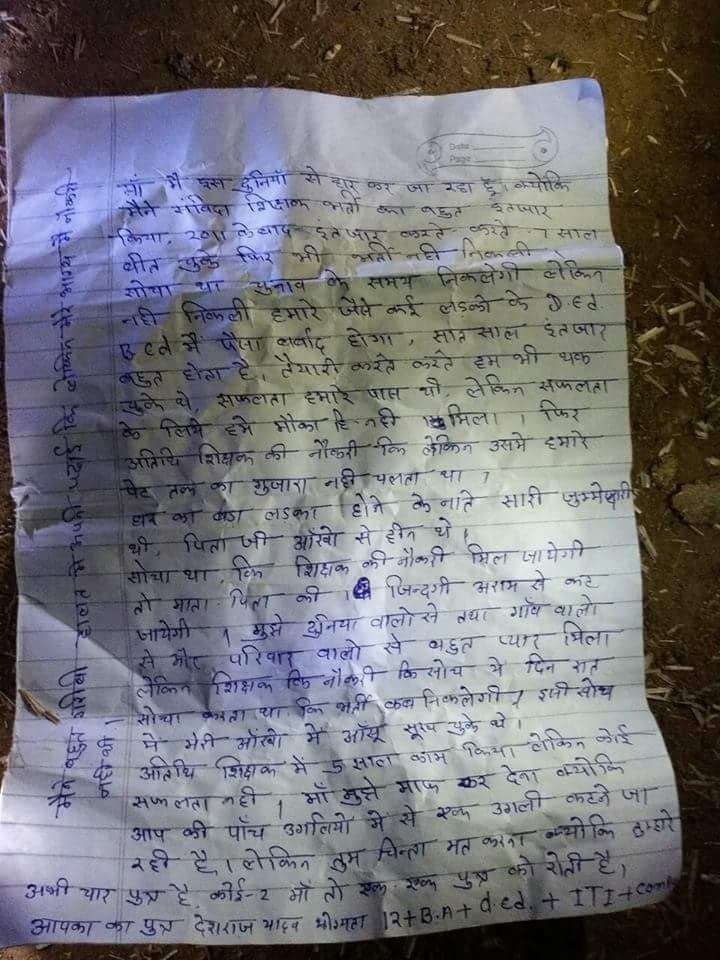 Date
Page
माँ मै इस दुनियाँ से हार कर जा रहा हूँ। क्योकि
मैने संविदा शिक्षक भर्ती का बहुत इंतजार
किया, 2011 के बाद इंतजार करते करते 7 साल
बीत चुके फिर भी भर्ती नही निकली
सोचा था चुनाव के समय निकलेगी लेकिन
नही निकली हमारे जैसे कई लडको के D.Ed.
B.Ed मै पैसा बर्वाद होगा, सात साल इंतजार
बहुत होता है, तैयारी करते करते हम भी थक
चुके थे, सफलता हमारे पास थी, लेकिन सफलता
के लिये हमे मौका हि नही मिला। फिर
अतिथि शिक्षक की नौकरी कि लेकिन उसमे हमारे
पेट तक का गुजारा नही चलता था।
घर का बडा लडका होने के नाते सारी जुम्मेदारी
थी, पिता जी आँखो से हीन थे।
सोचा था, कि शिक्षक की नौकरी मिल जायेगी
तो माता पिता की जिन्दगी अराम से कट
जायेगी। मुझे दुनिया वालो से तथा गाँव वालो
से और परिवार वालो से बहुत प्यार मिला
लेकिन शिक्षक कि नौकरी कि सोच मे दिन रात
सोचा करता था कि भर्ती कब निकलेगी, इसी सोच
मे मेरी आँखो मे आँसू सूख चुके थे।
अतिथि शिक्षक में 5 साल काम किया लेकिन कोई
सफलता नही। माँ मुझे माफ कर देना क्योकि
आप की पाँच उगलियो मे से एक उगली कटने जा
रही है। लेकिन तुम चिन्ता मत करना क्योकि तुम्हारे
अभी चार पुत्र है, कोई-2 माँ तो एक-एक पुत्र को रोती है,
आपका का पुत्र देशराज यादव योग्यता 12+B.A+d.ed.+ITI+
मैने बहुत गरीबी हालत मे अपनी पढाई कि लेकिन मेरे भाग्य मे नौकरी
नही थी।